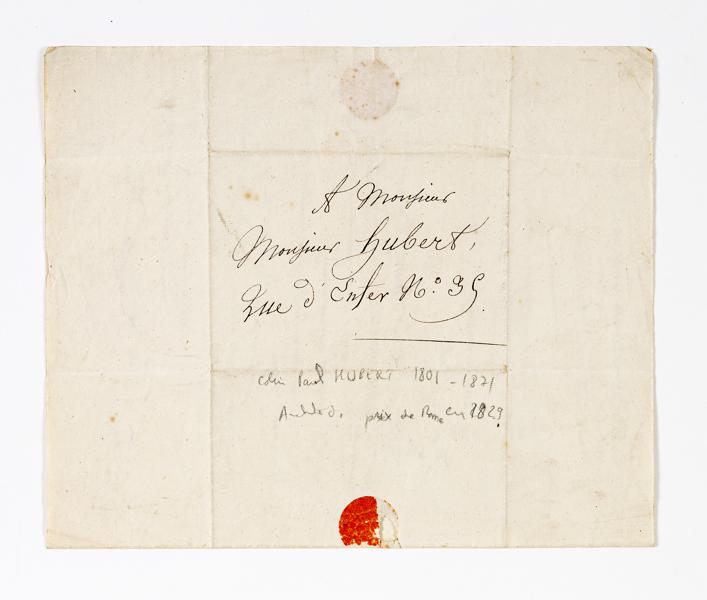 A Monsieur
Monsieur Hubert,
Rue d'Enfer N° 35.
Colin Paul HUBERT 1801 - 1871
prix de Rome en 1829